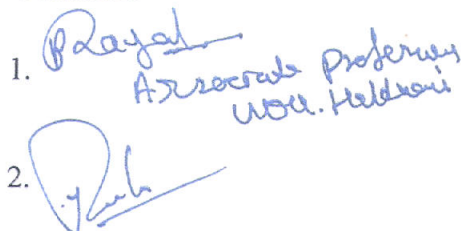 1. P Rayal
Associate Professor
UOU. Haldwani
2.